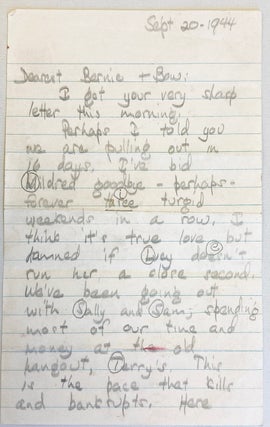 Sept 20-1944
Dearest Bernie + Bow:
I got your very sharp
letter this morning.
Perhaps I told you
we are pulling out in
16 days. I've bid
Mildred goodbye - perhaps -
forever three turgid
weekends in a row. I
think it's true love but
damned if Lucy doesn't
run her a close second.
We've been going out
with Sally and Sam; spending
most of our time and
money at the old
hangout, Terry's. This
is the pace that kills
and bankrupts. Here